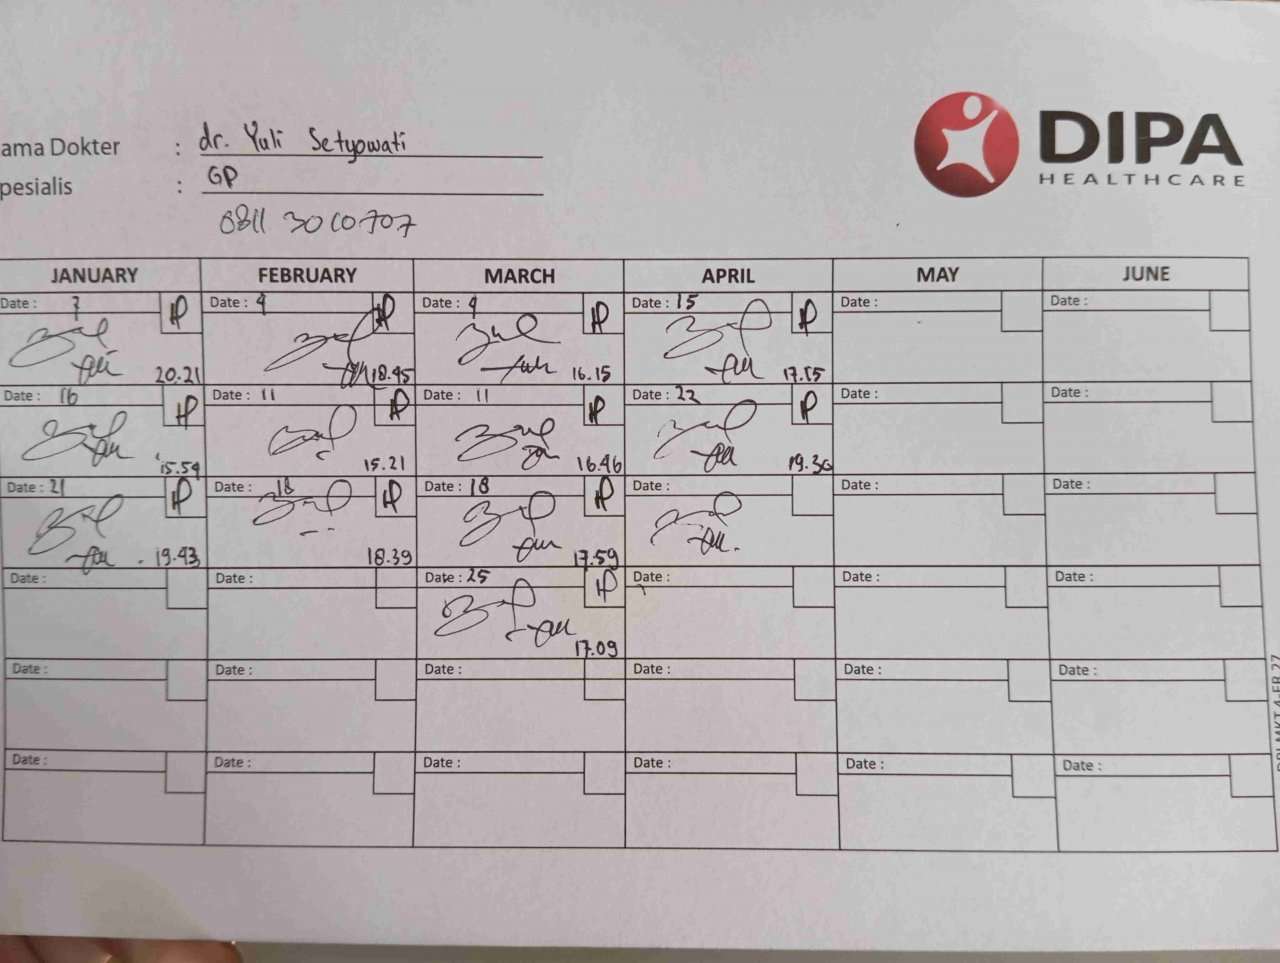 DIPA
HEALTHCARE
ama Dokter : dr. Yuli Setyowati
pesialis : GP
0811 3010707
JANUARY FEBRUARY MARCH APRIL MAY JUNE
Date : 7 Date : 9 Date : 9 Date : 15 Date : Date :
20.21 18.45 16.15 17.15
Date : 16 Date : 11 Date : 11 Date : 22 Date : Date :
15.59 15.21 16.46 19.30
Date : 21 Date : 18 Date : 18 Date : Date : Date :
19.43 18.39 17.59
Date : Date : Date : 25 Date : Date : Date :
17.09
Date : Date : Date : Date : Date : Date :
Date : Date : Date : Date : Date : Date :